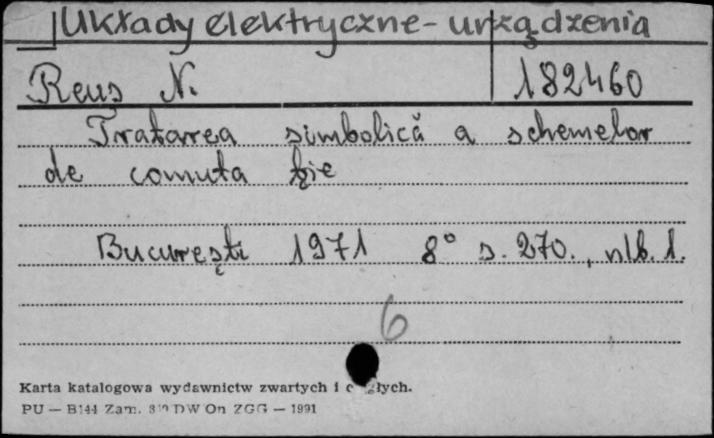 Układy elektryczne - urządzenia
Reus N. 182460
Tratarea simbolică a schemelor
de comuta ţie
Bucureşti 1971 8° s. 270., nlb. 1.
6
Karta katalogowa wydawnictw zwartych i
PU — B144 Zam. DW On ZGG — 1991